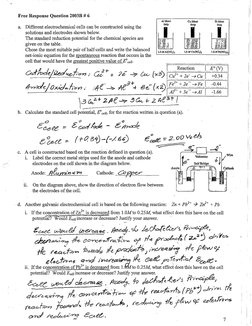 Free Response Question 2003B # 6
a. Different electrochemical cells can be constructed using the
solutions and electrodes shown below.
The standard reduction potential for the chemical species are
given on the table.
Chose the most suitable pair of half cells and write the balanced
net-ionic equation for the spontaneous reaction that occurs in the
cell that would have the greatest positive value of E°cell.
Reaction E° (V)
Cu²⁺ + 2e⁻ → Cu +0.34
Fe²⁺ + 2e⁻ → Fe -0.44
Al³⁺ + 3e⁻ → Al -1.66
Cathode/Reduction: Cu²⁺ + 2e⁻ → Cu (x3)
Anode/Oxidation: Al → Al³⁺ + 3e⁻ (x2)
3 Cu²⁺ + 2Al → 3Cu + 2Al³⁺
b. Calculate the standard cell potential, E°cell, for the reaction written in question (a).
E°cell = E cathode - E anode
E°cell = (+0.34)-(-1.66) E°cell = 2.00 volts
c. A cell is constructed based on the reaction defined in question (a).
i. Label the correct metal strips used for the anode and cathode
electrodes on the cell shown in the diagram below.
Anode: Aluminum Cathode: Copper
ii. On the diagram above, show the direction of electron flow between
the electrodes of the cell.
d. Another galvanic electrochemical cell is based on the following reaction: Zn + Pb²⁺ → Zn²⁺ + Pb
i. If the concentration of Zn²⁺ is decreased from 1.0M to 0.25M, what effect does this have on the cell
potential? Would Ecell increase or decrease? Justify your answer.
Ecell would increase. According to Le Chatelier's Principle,
decreasing the concentration of the products (Zn²⁺) drives
the reaction towards the products, increasing the flow of
electrons and increasing the cell potential Ecell.
ii. If the concentration of Pb²⁺ is decreased from 1.0M to 0.25M, what effect does this have on the cell
potential? Would Ecell increase or decrease? Justify your answer.
Ecell would decrease. According to Le Chatelier's Principle,
decreasing the concentration of the reactants (Pb²⁺) drives the
reaction towards the reactants, reducing the flow of electrons
and reducing Ecell.
7